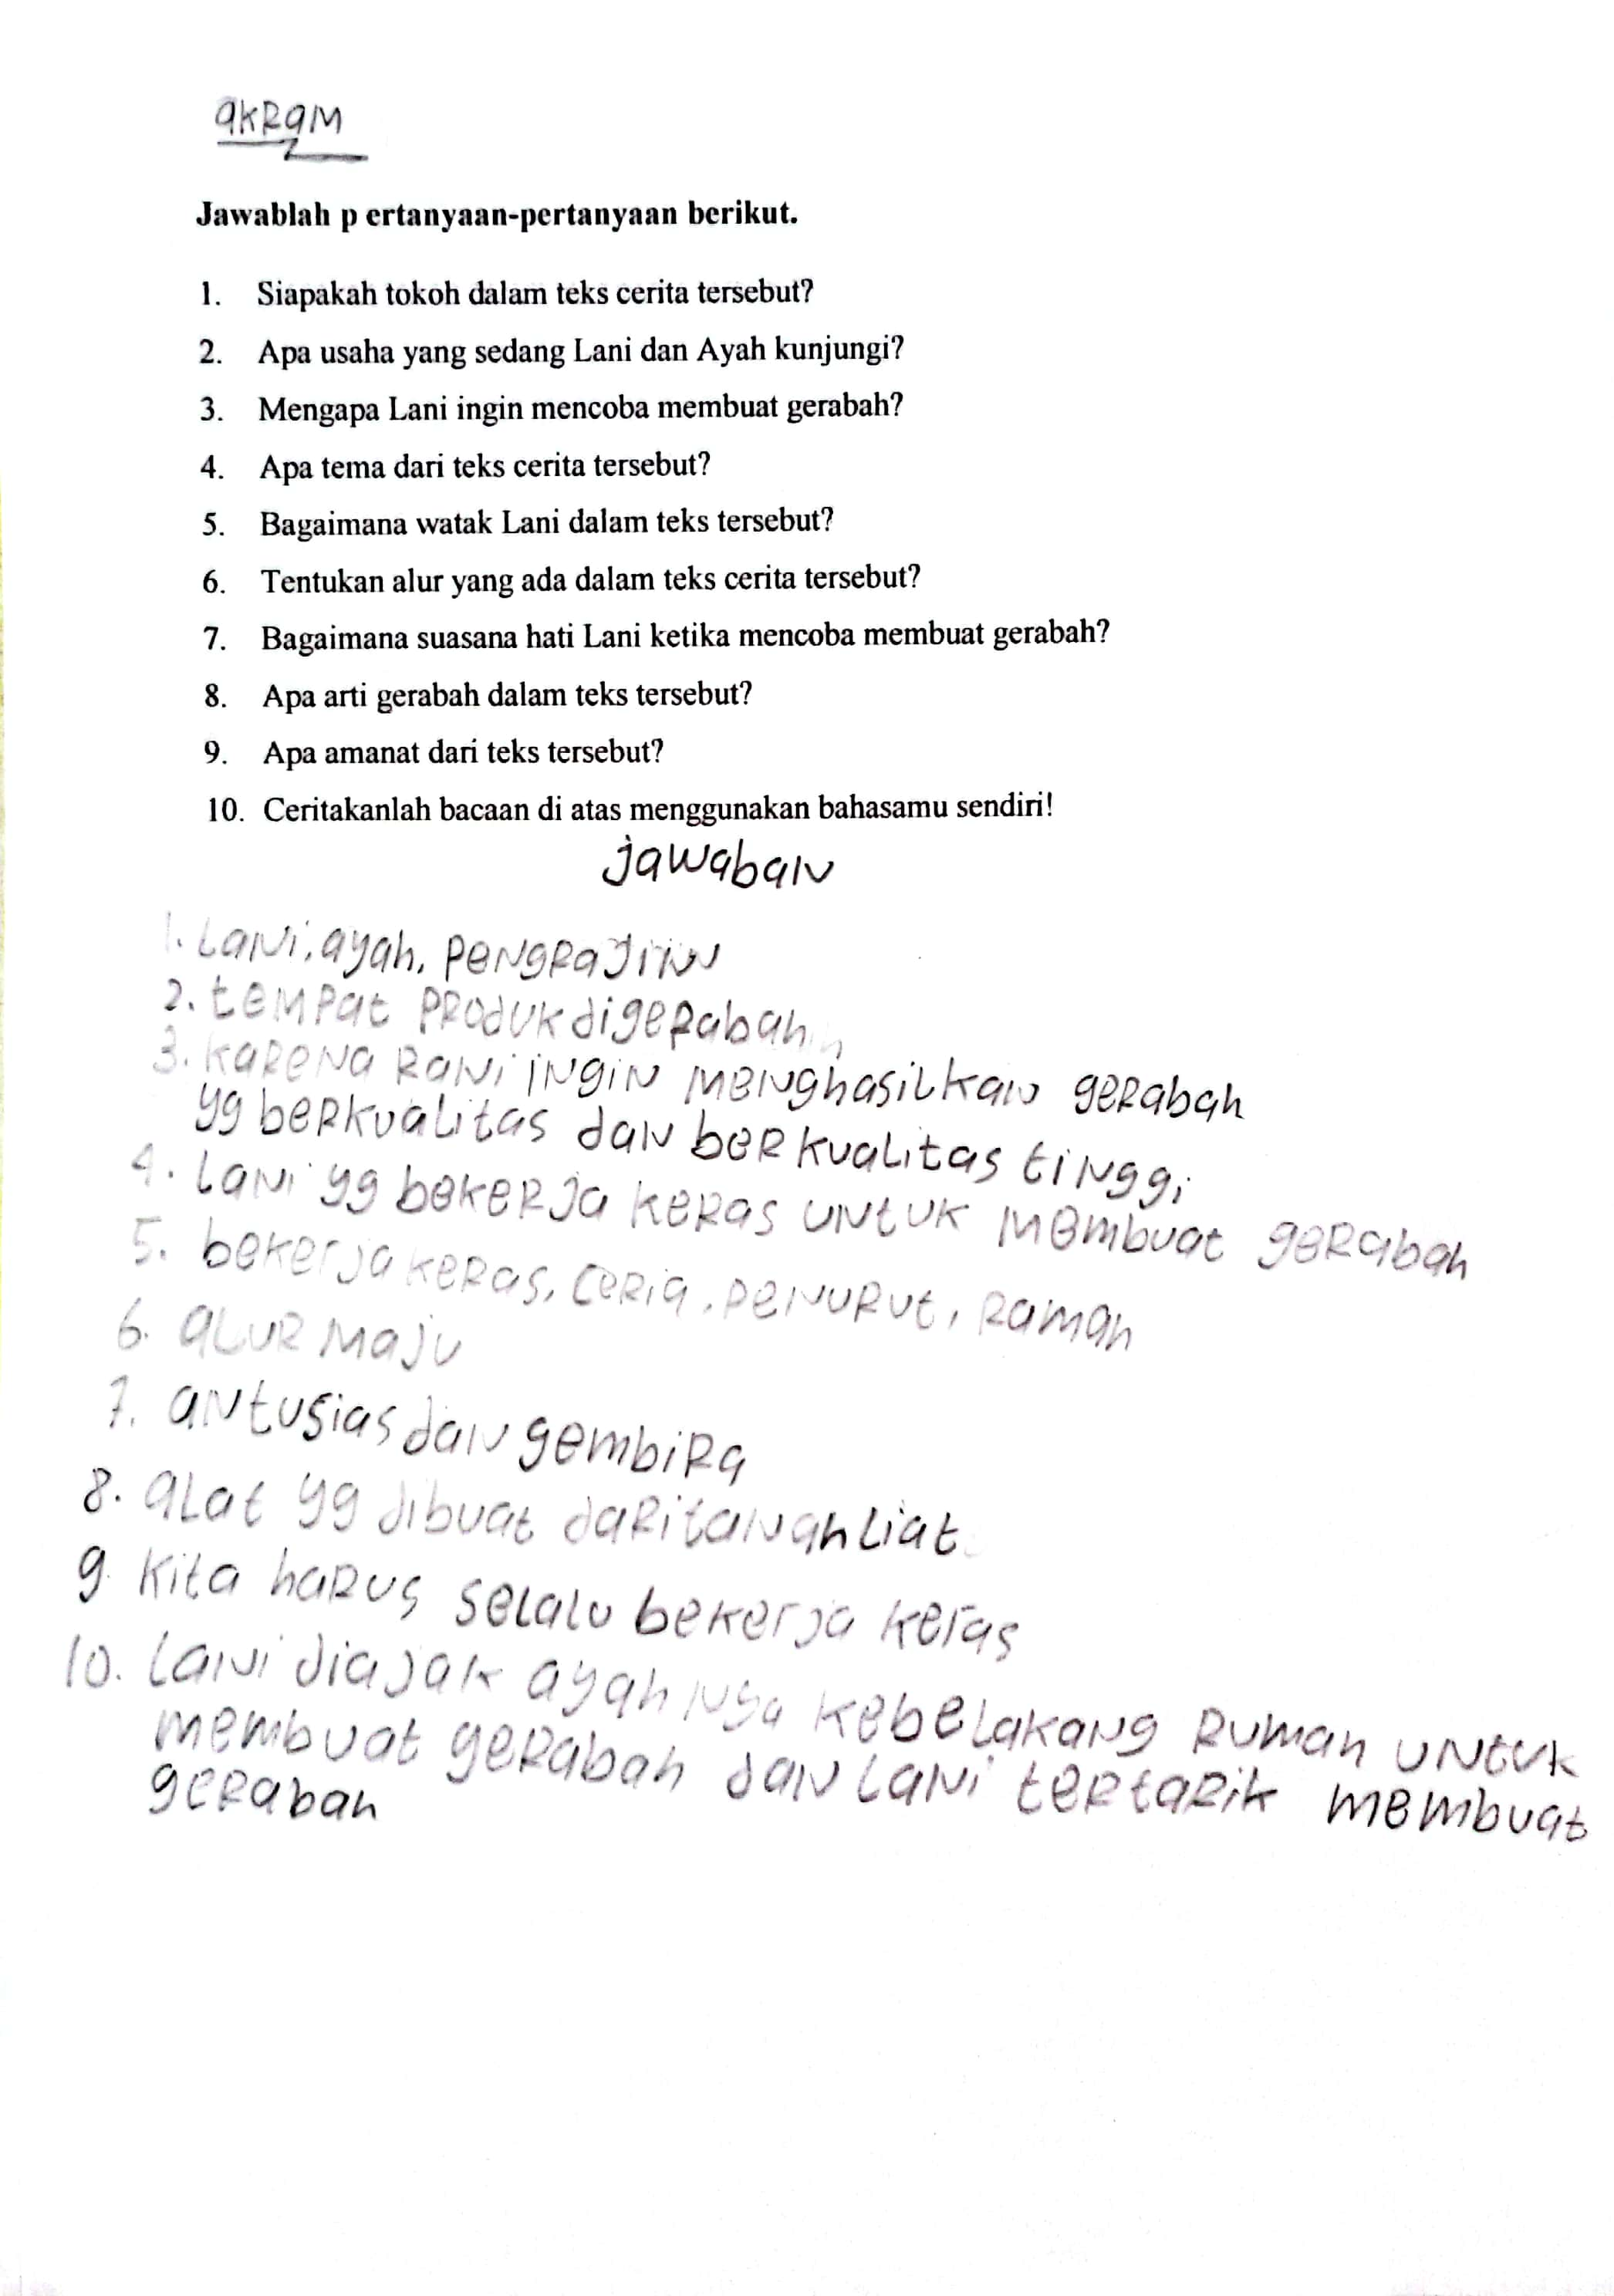 akram
Jawablah p ertanyaan-pertanyaan berikut.
1. Siapakah tokoh dalam teks cerita tersebut?
2. Apa usaha yang sedang Lani dan Ayah kunjungi?
3. Mengapa Lani ingin mencoba membuat gerabah?
4. Apa tema dari teks cerita tersebut?
5. Bagaimana watak Lani dalam teks tersebut?
6. Tentukan alur yang ada dalam teks cerita tersebut?
7. Bagaimana suasana hati Lani ketika mencoba membuat gerabah?
8. Apa arti gerabah dalam teks tersebut?
9. Apa amanat dari teks tersebut?
10. Ceritakanlah bacaan di atas menggunakan bahasamu sendiri!
jawaban
1. Lani, ayah, pengrajin
2. tempat produkdigerabah
3. karena rani ingin menghasilkan gerabah
yg berkualitas dan berkualitas tinggi
4. Lani yg bekerja keras untuk membuat gerabah
5. bekerja keras, ceria, penurut, ramah
6. alur maju
7. antusias dan gembira
8. alat yg dibuat dari tanah liat
9 kita harus selalu bekerja keras
10. Lani diajak ayahnya kebelakang rumah untuk
membuat gerabah dan Lani tertarik membuat
gerabah